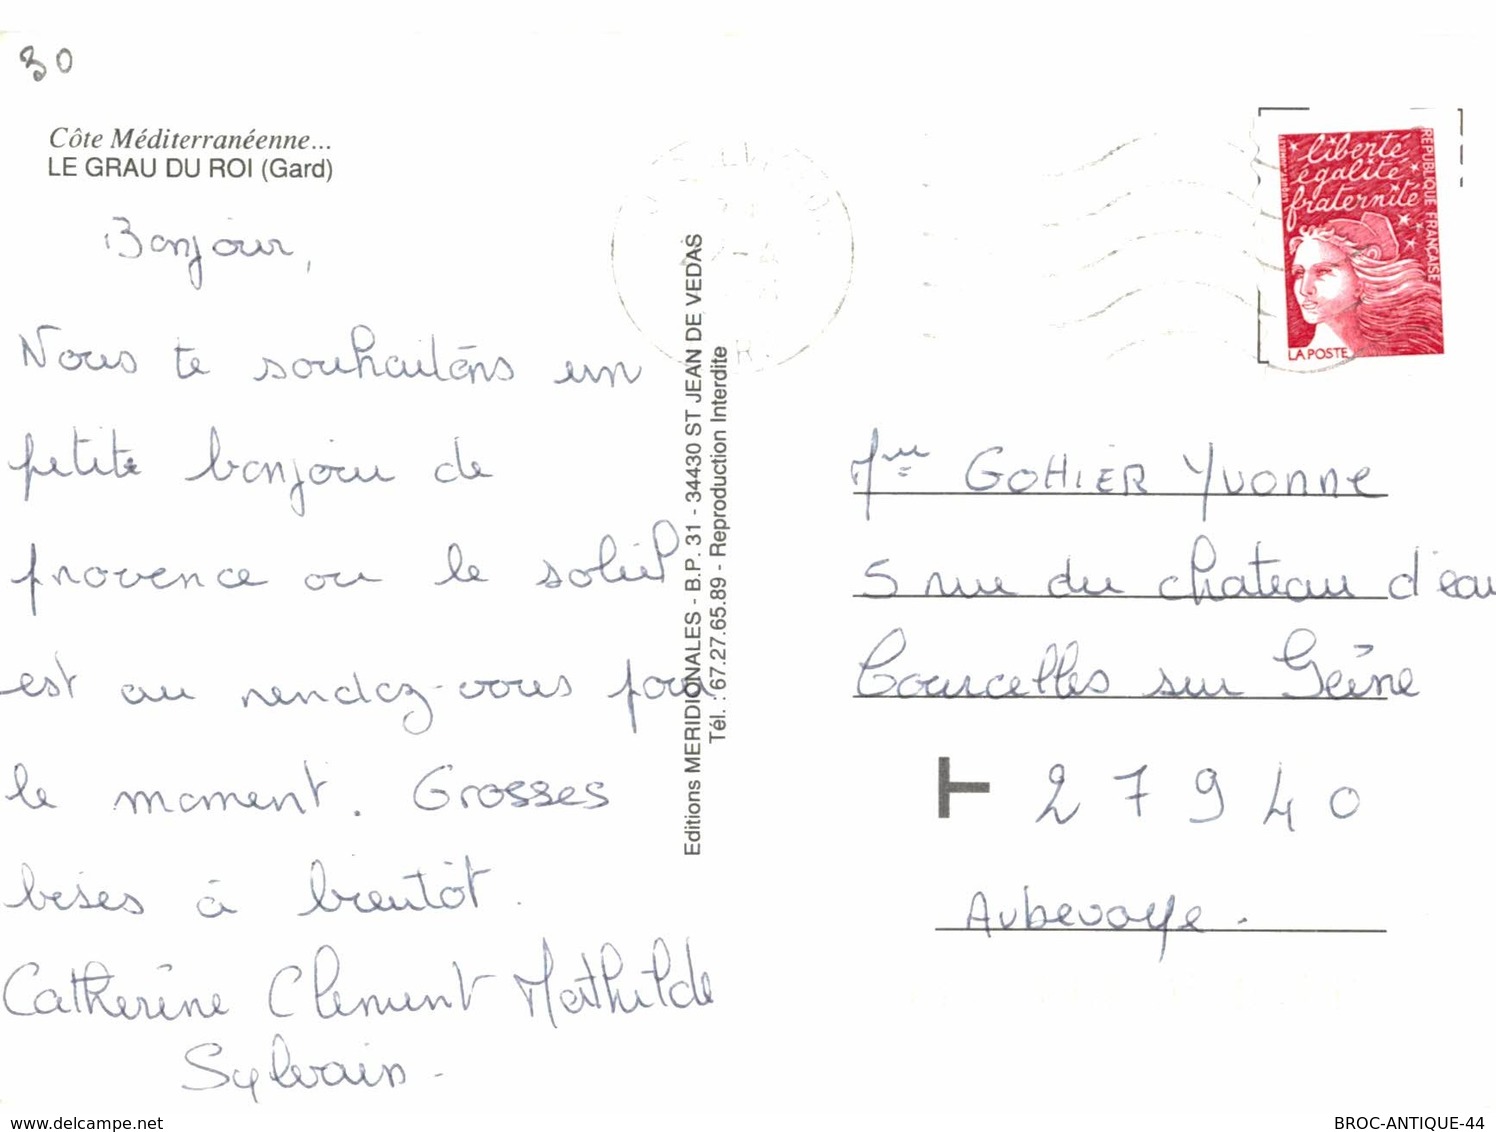 30
Côte Méditerranéenne...
LE GRAU DU ROI (Gard)
Bonjour,
Nous te souhaitons un
petite bonjour de
provence ou le soleil
est au rendez-vous pour
le moment. Grosses
bises à bientôt.
Catherine Clement Mathilde
Sylvain -
Editions MERIDIONALES - B.P. 31 - 34430 ST JEAN DE VEDAS
Tél. : 67.27.65.89 - Reproduction Interdite
liberté
égalité
fraternité
REPUBLIQUE FRANÇAISE
LA POSTE
Mme GOHIER Yvonne
5 rue du chateau d'eau
Courcelles sur Seine
27940
Aubevoye.
delcampe.net
BROC-ANTIQUE-44